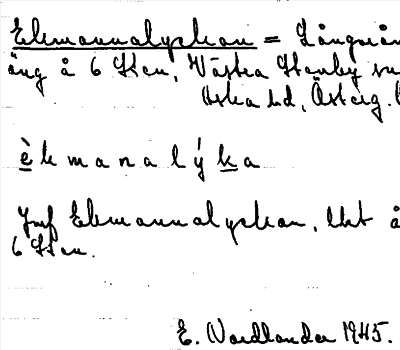 Ekmannalyckan = Långmån
äng å 6 Sten, Västra Stenby sn
Aska hd, Österg.
èkmanalýka
Jmf Ekmannalyckan, lht å
6 Sten.
E. Nordlander 1945.